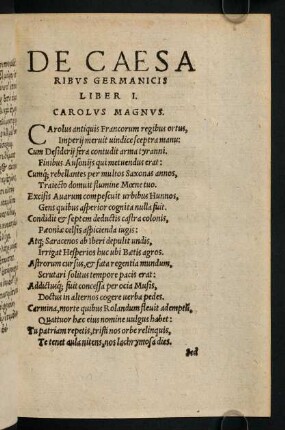 DE CAESA
RIBVS GERMANICIS
LIBER I.
CAROLVS MAGNVS.
CArolus antiquis Francorum regibus ortus,
Imperij meruit uindice sceptra manu:
Cum Desiderij fera contudit arma tyranni.
Finibus Ausonijs qui metuendus erat:
Cumq; rebellantes per multos Saxonas annos,
Traiecto domuit flumine Mœne tuo.
Excisis Auarum compescuit urbibus Hunnos,
Gens quibus asperior cognita nulla fuit.
Condidit & septem deductis castra colonis,
Pæoniæ celsis aspicienda iugis:
Atq; Saracenos ab Iberi depulit undis,
Irrigat Hesperios huc ubi Bætis agros.
Astrorum cursus, et fata regentia mundum,
Scrutari solitus tempore pacis erat:
Addictusq; fuit concessa per ocia Musis,
Doctus in alternos cogere uerba pedes.
Carmina, morte quibus Rolandum fleuit ademptū,
Quattuor hæc eius nomine uulgus habet:
Tu patriam repetis, tristi nos orbe relinquis,
Te tenet aula nitens, nos lachrymosa dies.
Sed